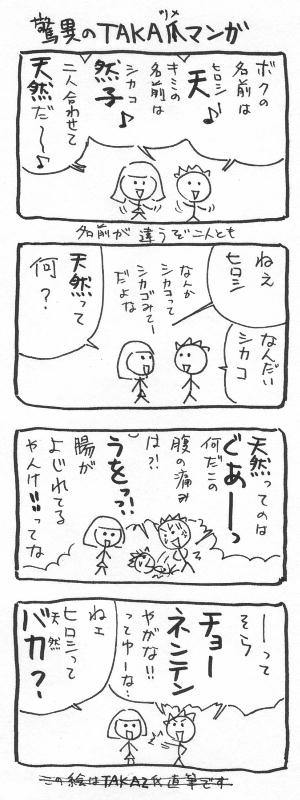 驚異のTAKA爪マンガ
ツメ
ボクの
名前は
ヒロシ
天♪
キミの
名前は
シカコ
然子♪
二人合わせて
天然だ〜〜♪
名前が違うぞ二人とも
ねえ
ヒロシ
なんだい
シカコ
なんか
シカコって
シカゴみてー
だよな
天然って
何？
天然ってのは
ぐあーーっ
何だこの
腹の痛み
は?!
うをっっ!!
腸が
よじれてる
やんけ!!ってな
ーーって
そら
チョー
ネンテン
やがな!!
ってゆーな…
ねェ
ヒロシって
天然
バカ？
この絵はTAKA2氏直筆です